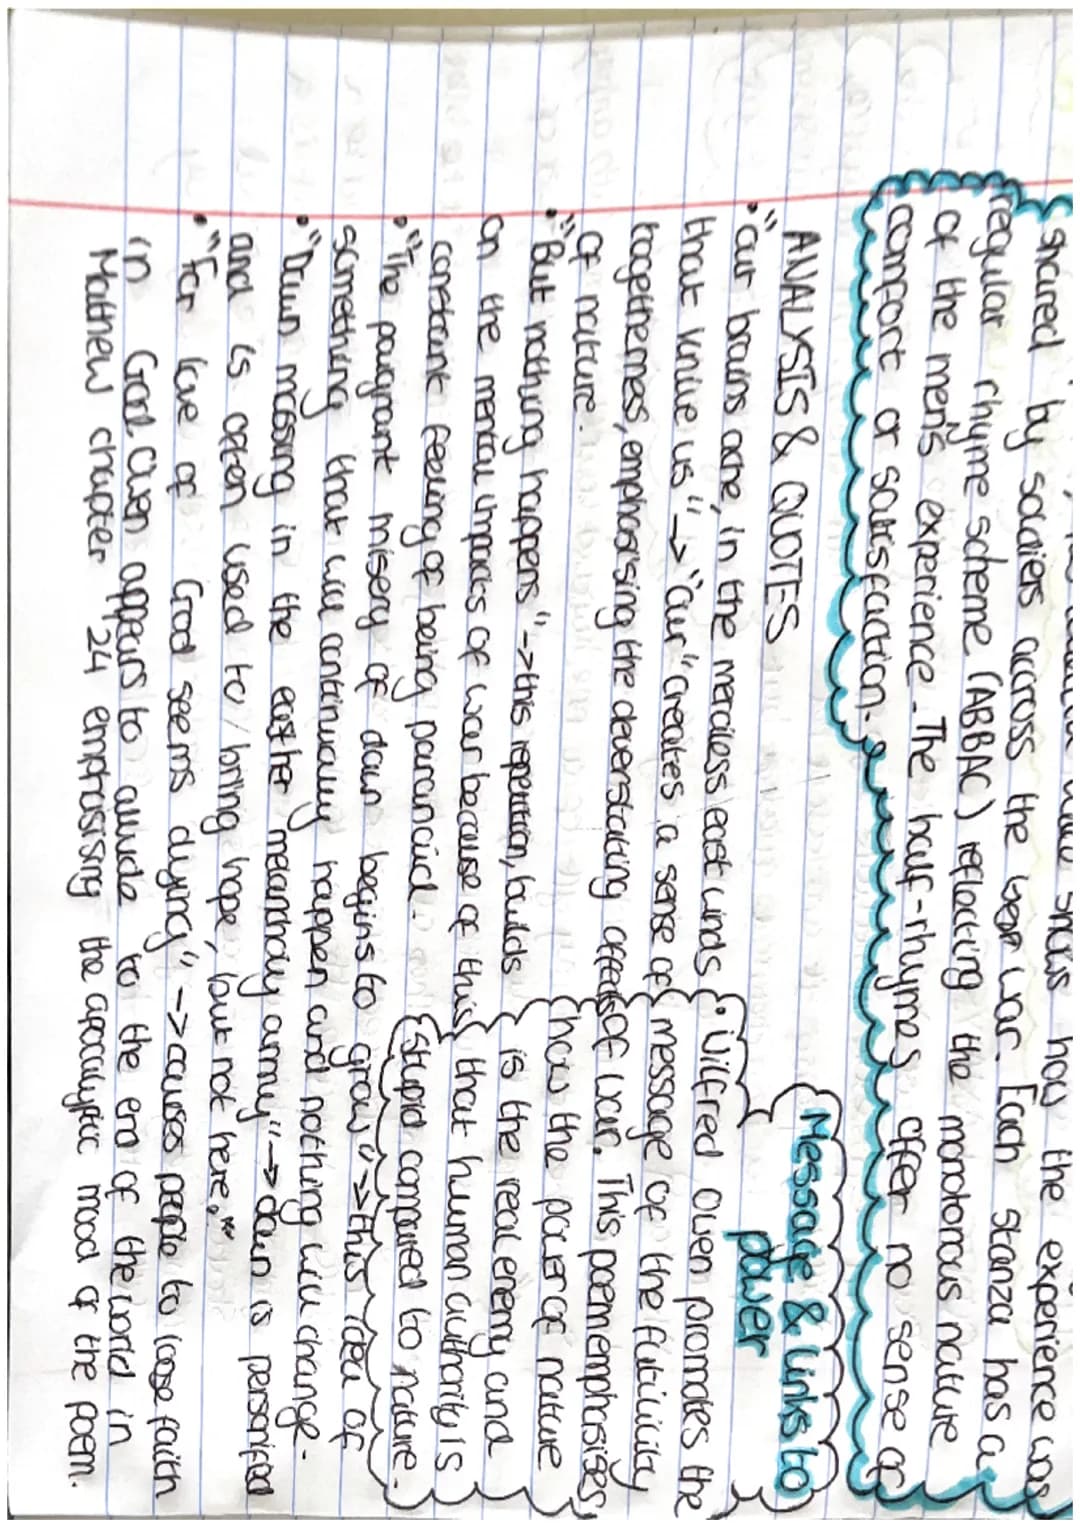 shows how the experience was
shared by soldiers across the war. Each stanza has a
regular rhyme scheme (ABBAC) reflecting the monotonous nature
of the men's experience. The half-rhymes offer no sense of
comfort or satisfaction.
ANALYSIS & QUOTES
• "our brains ache, in the merciless east winds
that knive us" -> "our" creates a sense of
togetherness, emphasising the deverstating affects
of nature.
• "But nothing happens" -> this repetition, builds
on the mental impacts of war because of this
constant feeling of being paranoid.
• "The paugrant misery of dawn begins to grow" -> this idea of
something that will continually happen and nothing will change.
• "Dawn massing in the easther melancholy army" -> dawn is personified
and is often used to/bring hope, but not here."
• "For love of God seems dying" -> causes people to loose faith
in God. Owen appears to allude to the end of the world in
Matthew chapter 24 emphasising the apocalyptic mood of the poem.
Message & Links to
power
• Wilfred Owen promotes the
message of the futility
of war. This poem emphasises
how the power of nature
is the real enemy and
that human authority is
stupid compared to nature.